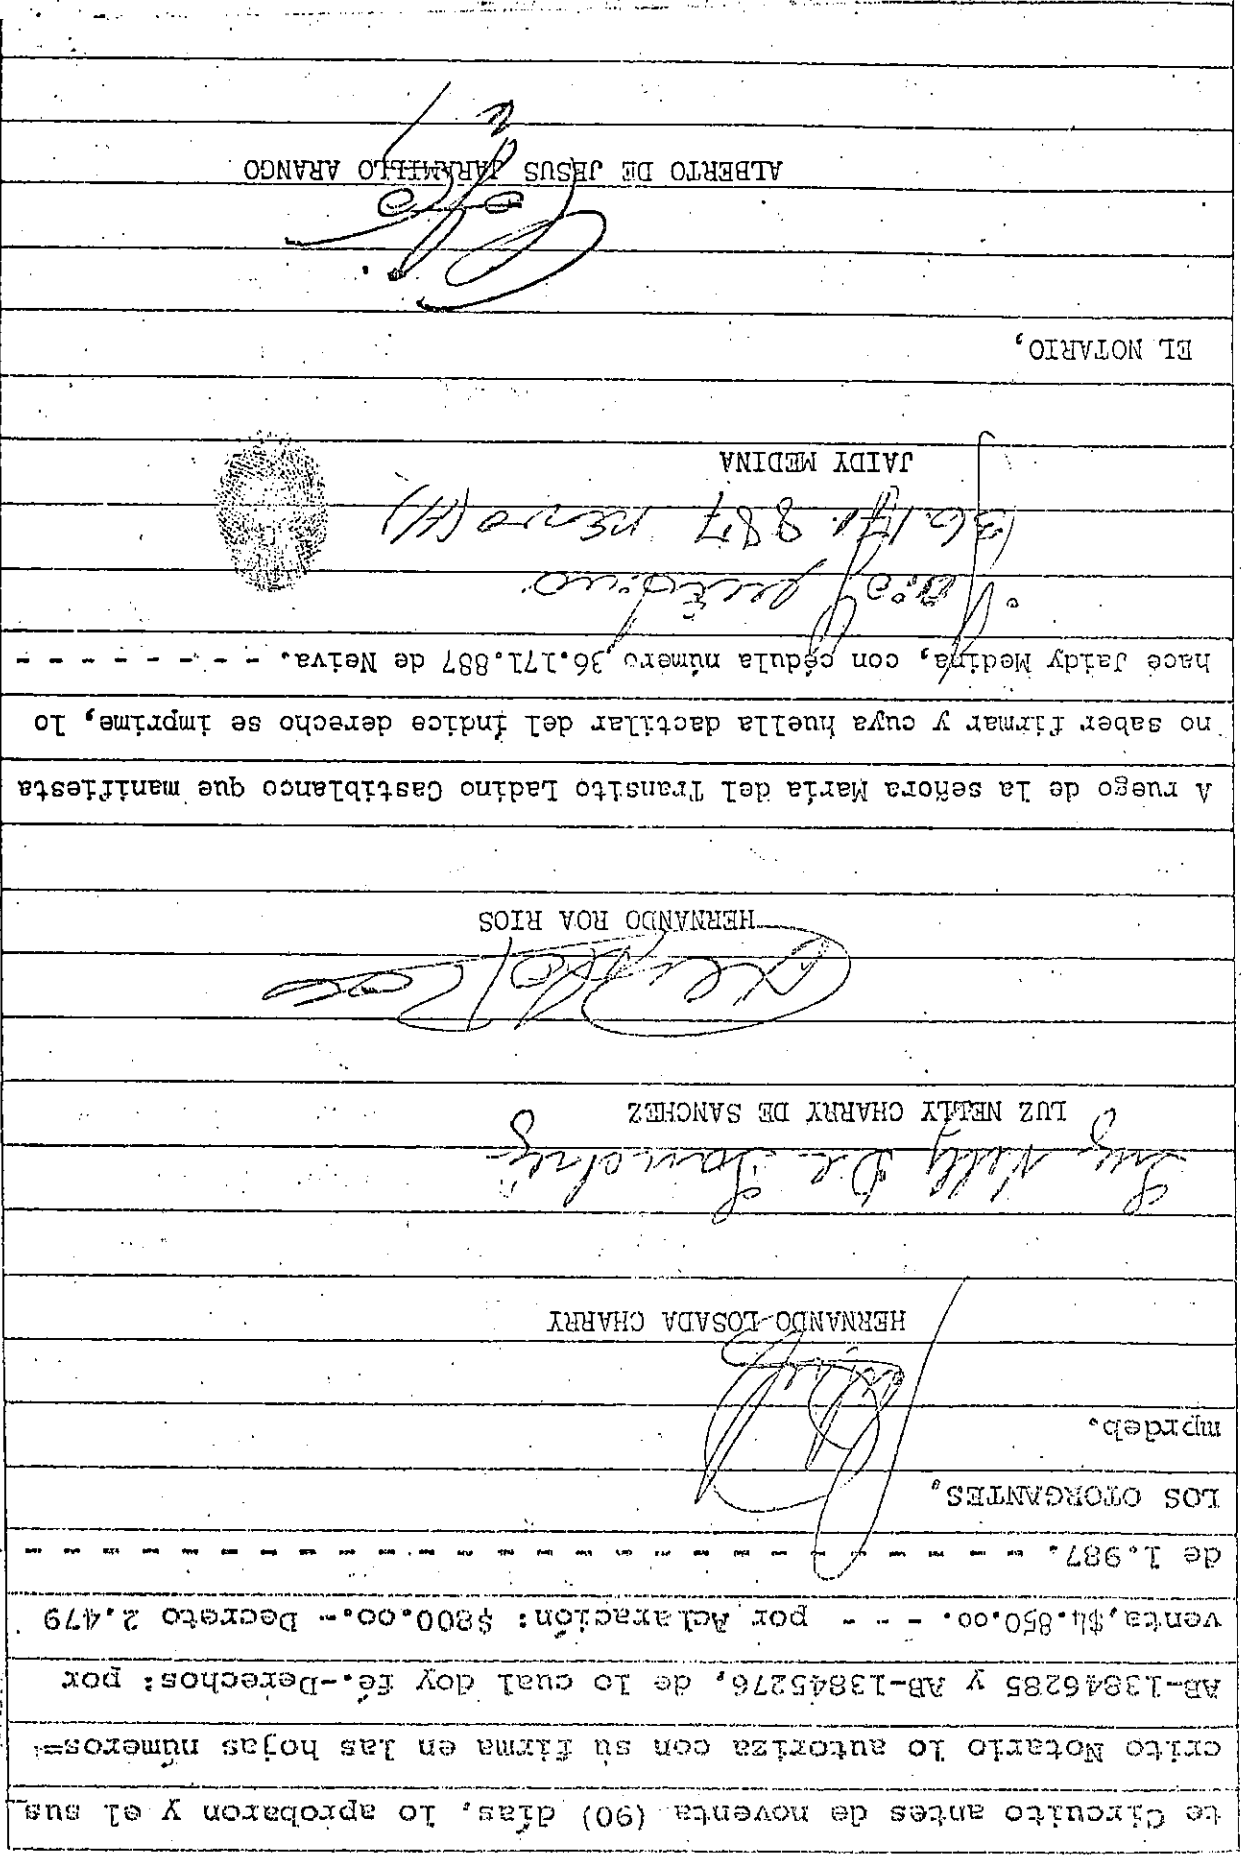 te Circuito antes de noventa (90) días, lo aprobaron y el sus
crito Notario lo autoriza con su firma en las hojas números=
AB-13846285 y AB-13845276, de lo cual doy fé.-Derechos: por
venta,$4.850.oo. - - - por Aclaración: $800.oo.- Decreto 2.479
de 1.987. - - - - - - - - - - - - - - - - - - - - - - - - - - -
LOS OTORGANTES,
mprdeb.
HERNANDO LOSADA CHARRY
Luz Nelly De Sanchez
LUZ NELLY CHARRY DE SANCHEZ
HERNANDO ROA RIOS
A ruego de la señora María del Transito Ladino Castiblanco que manifiesta
no saber firmar y cuya huella dactilar del índice derecho se imprime, lo
hace Jaidy Medina, con cédula número 36.171.887 de Neiva. - - - - - - - -
Jaidy Medina
36.171.887 Neiva (H)
JAIDY MEDINA
EL NOTARIO,
ALBERTO DE JESUS JARAMILLO ARANGO